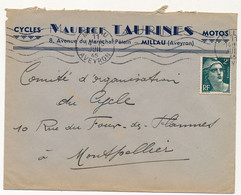 CYCLES MAURICE TAURINES MOTOS
8, Avenue du Maréchal Pétain - MILLAU (Aveyron)
AVEYRON
Comité d'organisation
du Cycle
10 Rue du Four-des-Flammes
à Montpellier